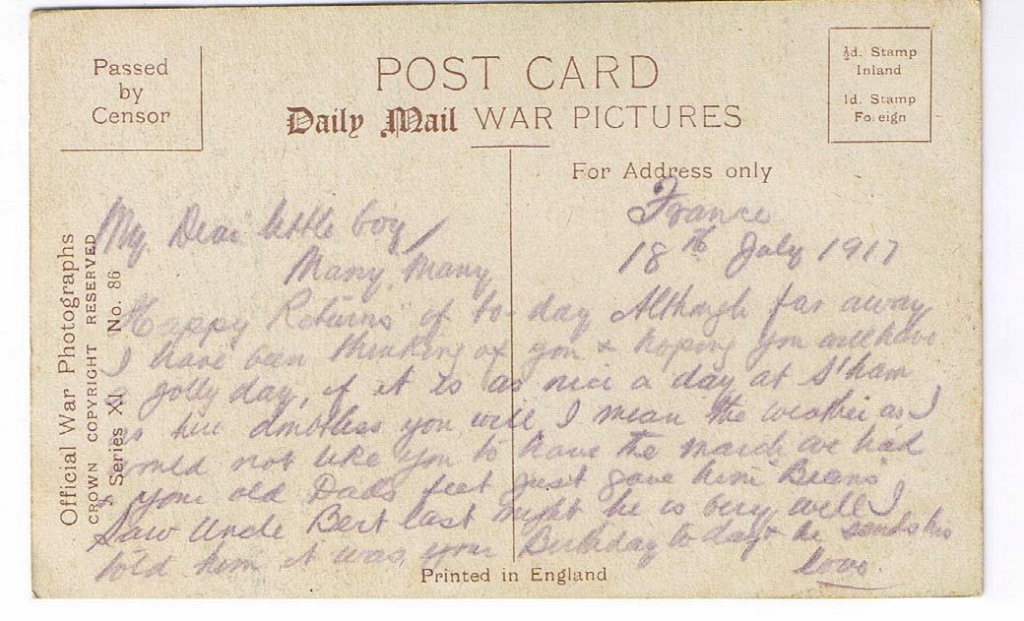 Passed
by
Censor
POST CARD
Daily Mail WAR PICTURES
½d. Stamp
Inland
1d. Stamp
Fo eign
For Address only
Official War Photographs
CROWN COPYRIGHT RESERVED
Series XI No. 86
France
18th July 1917
My Dear little boy/
Many, Many
Happy Returns of to-day Although far away
I have been thinking of you & hoping you will have
a jolly day, if it is as nice a day at S'ham
as here doubtless you will I mean the weather as I
would not like you to have the march we had
& your old Dads feet just gave him Beans
Saw Uncle Bert last night he is very well I
told him it was your Birthday to day & he sends his
love
Printed in England